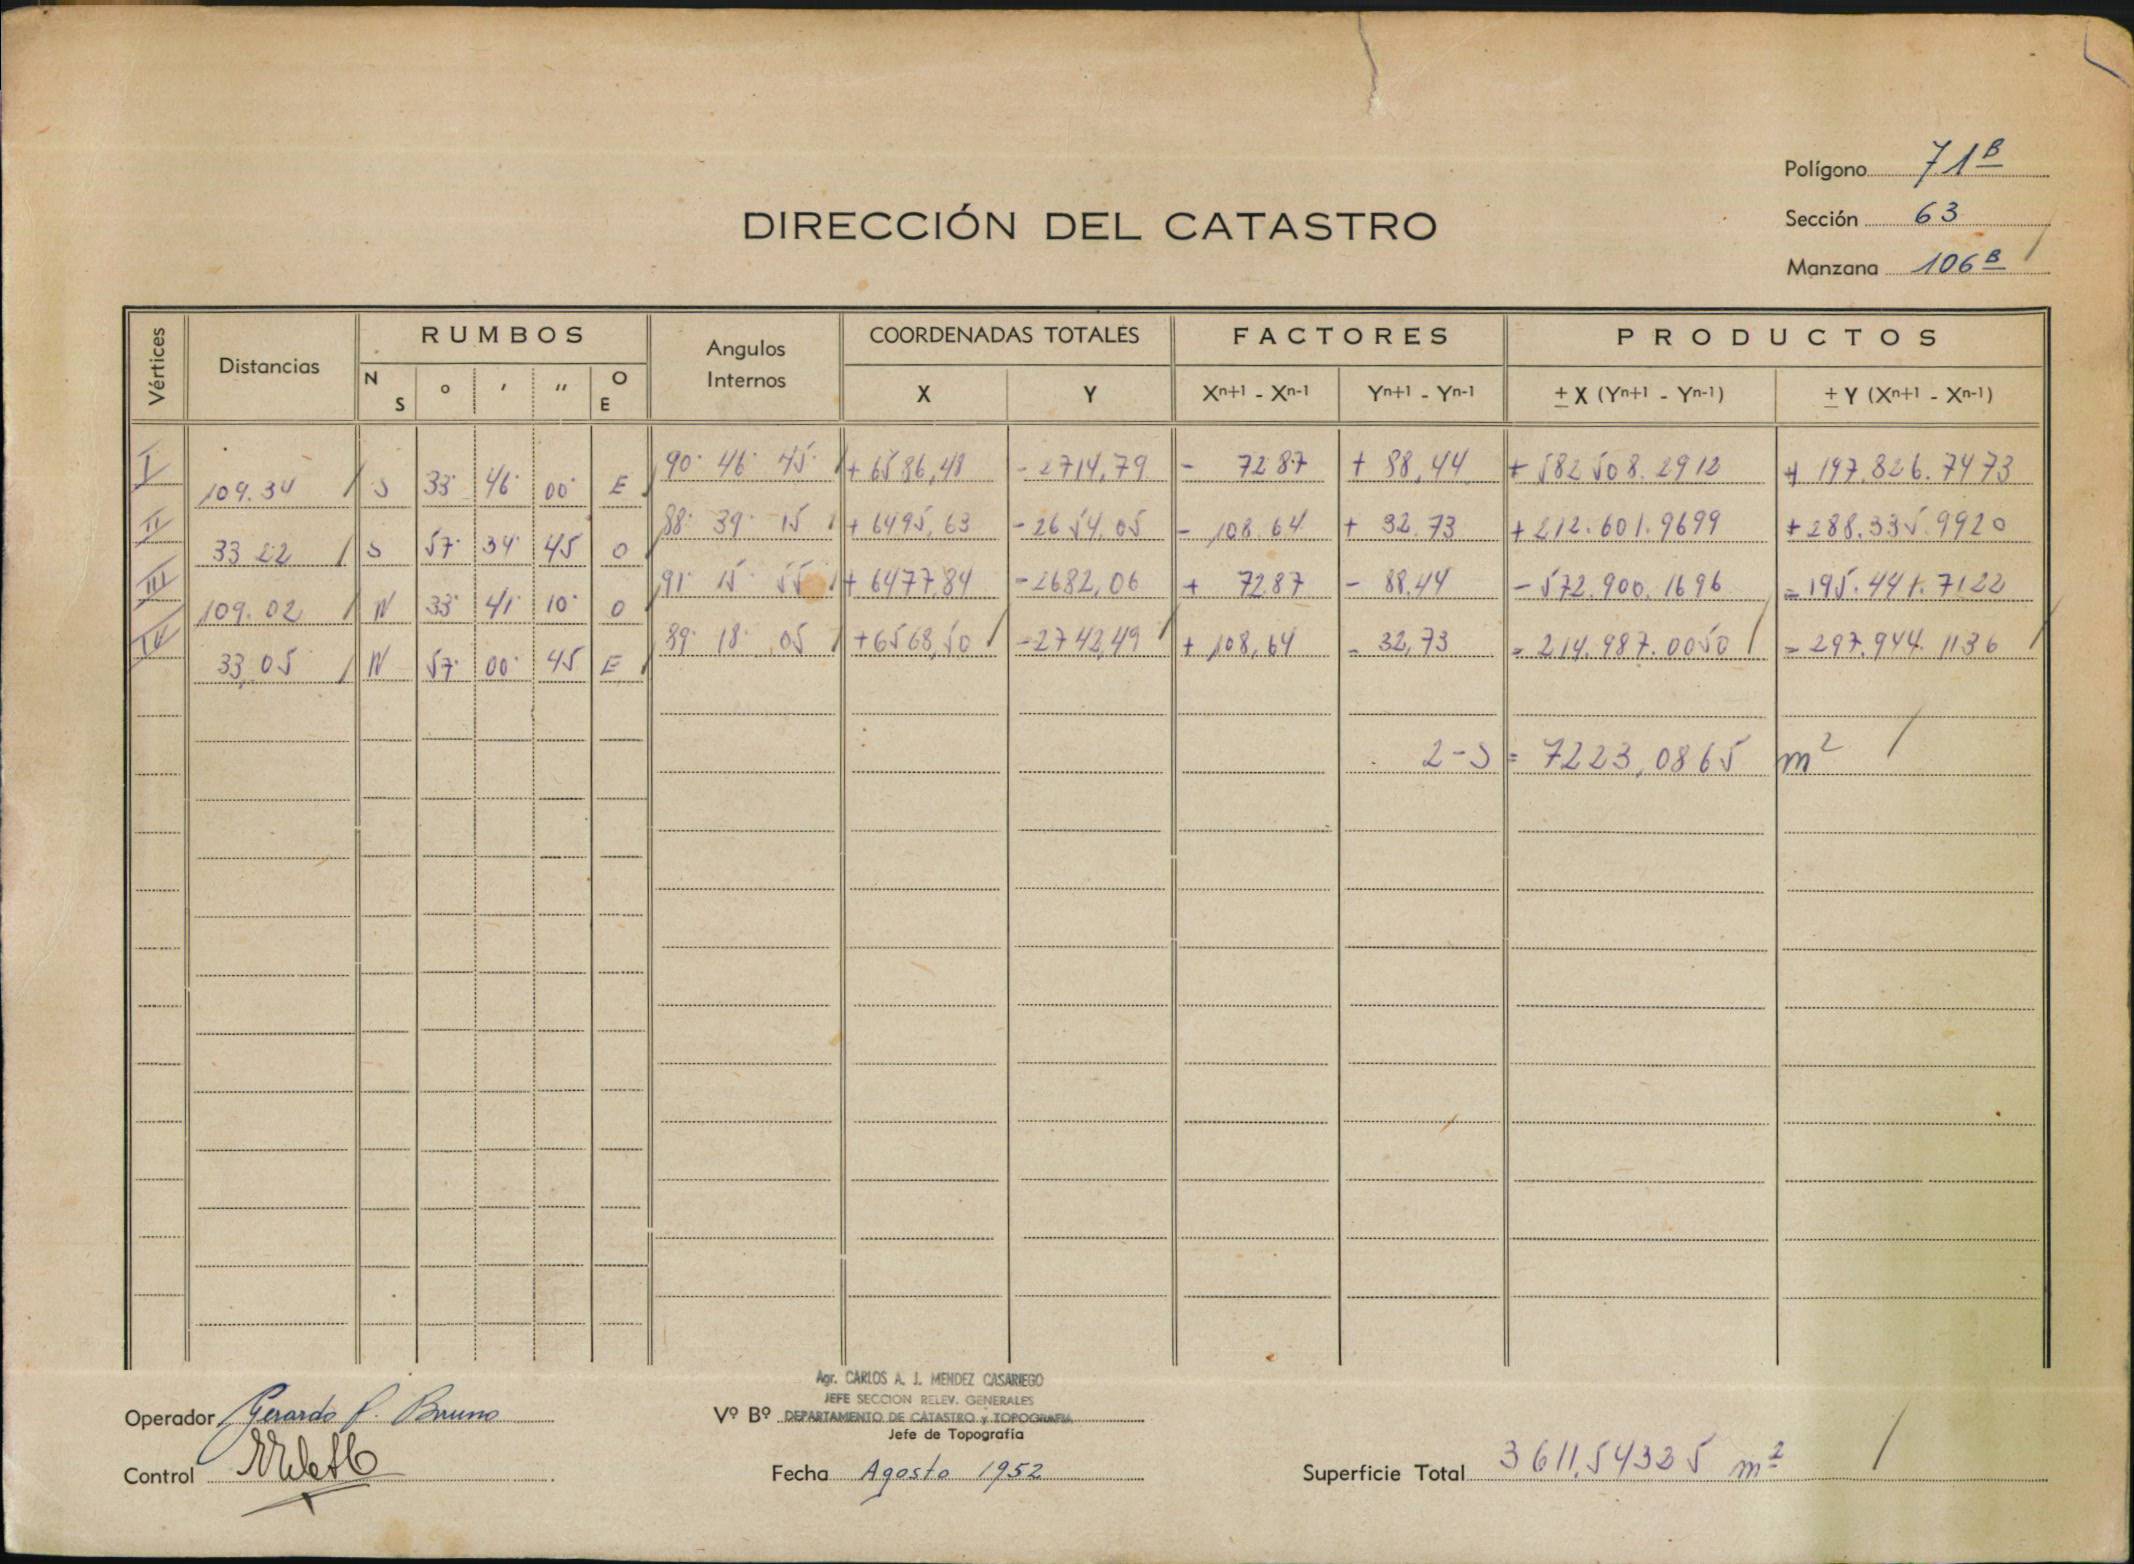 Polígono 71 B
Sección 63
Manzana 106 B
DIRECCIÓN DEL CATASTRO
Vértices Distancias RUMBOS Angulos Internos COORDENADAS TOTALES FACTORES PRODUCTOS
N S ° ' " O E X Y Xn+1 - Xn-1 Yn+1 - Yn-1 ± X (Yn+1 - Yn-1) ± Y (Xn+1 - Xn-1)
I 90° 46' 45" + 6586,48 - 2714,79 - 72.87 + 88,44 + 582 508.2912 + 197.826.7473
109.34 S 33° 46' 00" E
II 88° 39' 15 + 6495,63 - 2654,05 - 108.64 + 32.73 + 212.601.9699 + 288.335.9920
33 22 S 57° 34' 45 O
III 91 15' 55 + 6477,84 - 2682,06 + 72.87 - 88.44 - 572.900.1696 - 195.441.7122
109.02 N 33° 41' 10" O
IV 89° 18' 05 + 6568,50 - 2742,49 + 108,64 - 32,73 - 214.987.0050 - 297.944.1136
33,05 N 57° 00' 45 E
2-S = 7223,0865 m²
Agr. CARLOS A. J. MENDEZ CASARIEGO
JEFE SECCION RELEV. GENERALES
Operador Gerardo P. Bruno Vº Bº DEPARTAMENTO DE CATASTRO y TOPOGRAFIA
Jefe de Topografía
Control Fecha Agosto 1952 Superficie Total 3611,54325 m²